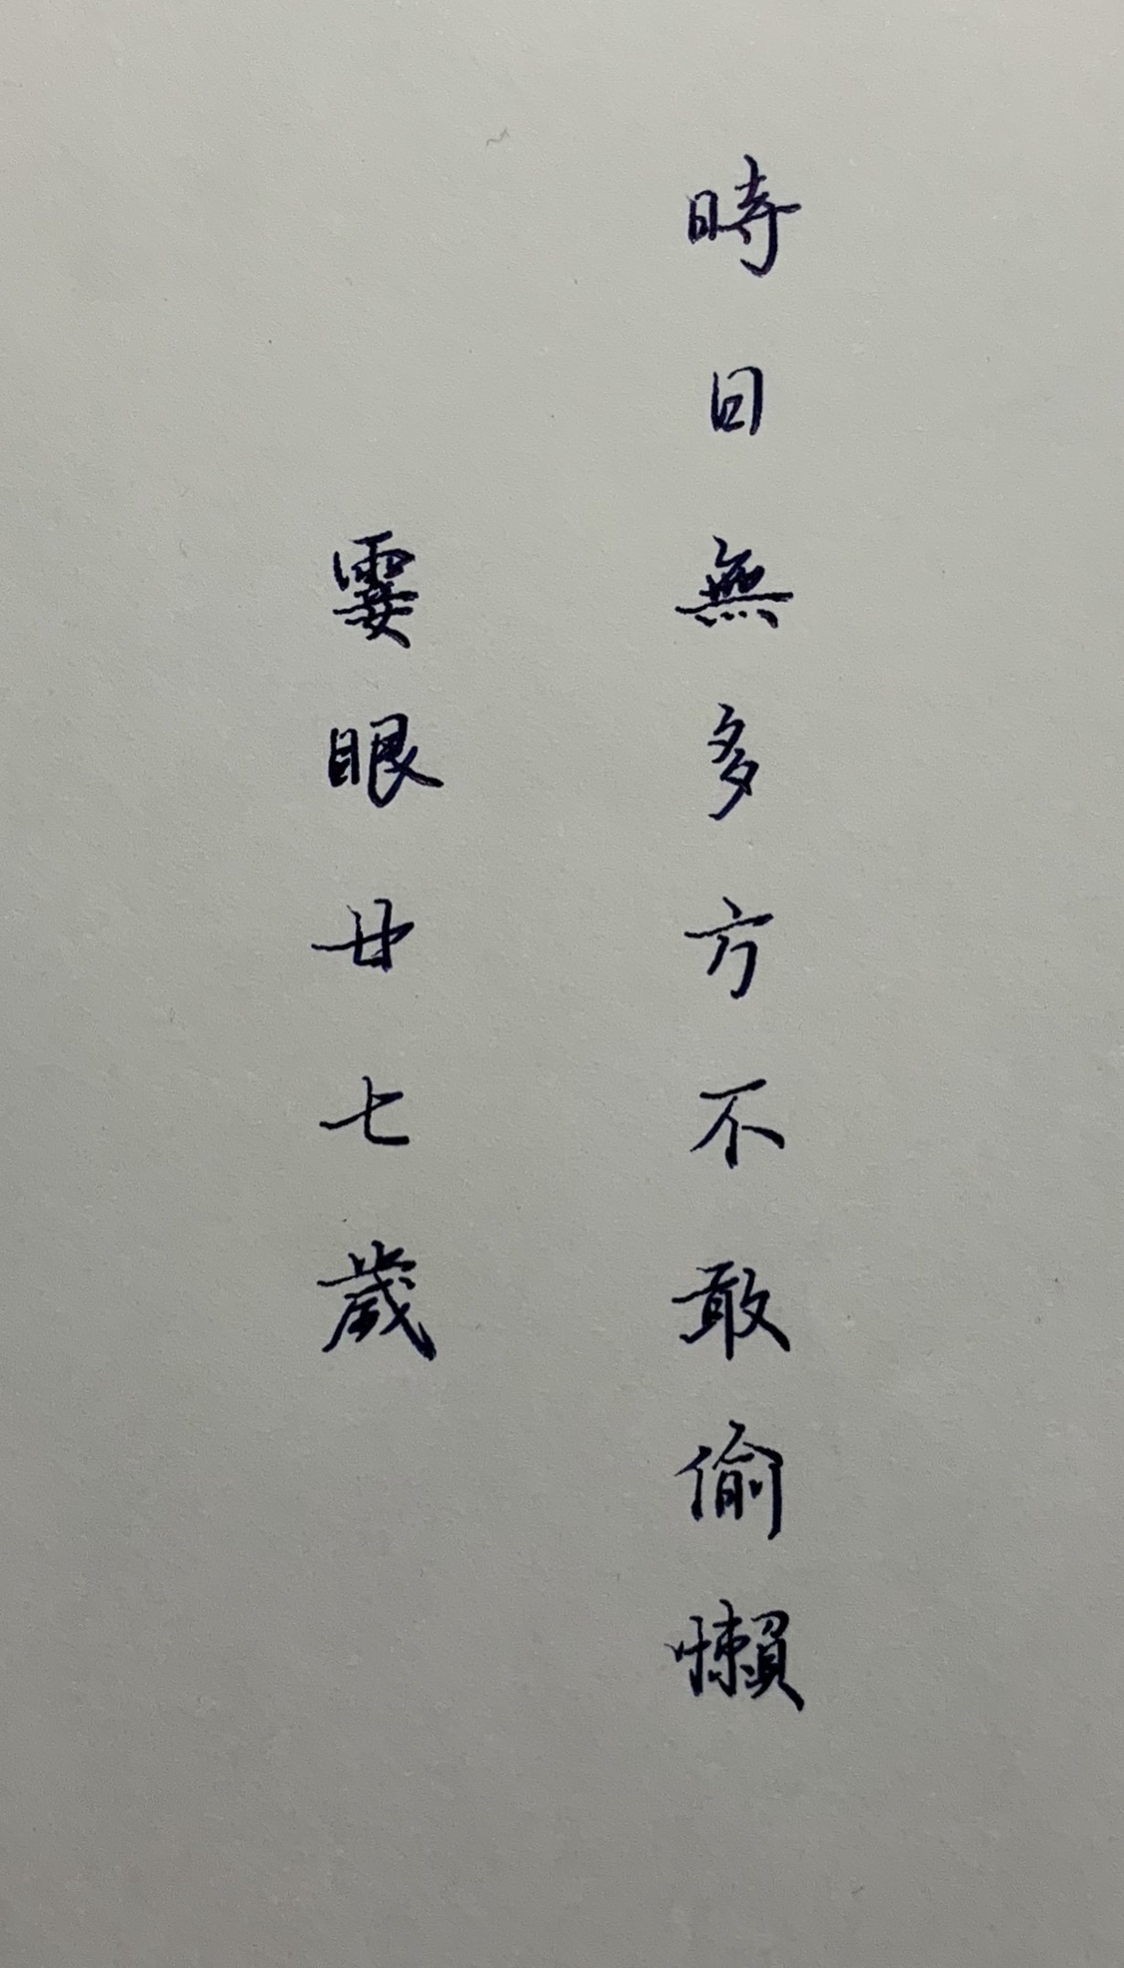 時日無多方不敢偷懶
霎眼廿七歲